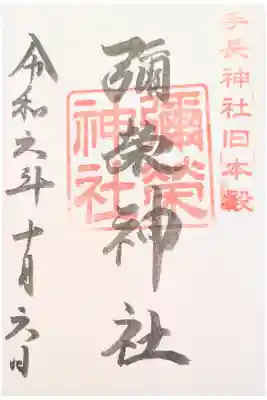 手長神社旧本殿
彌榮神社
彌榮神社
令和六年十月六日